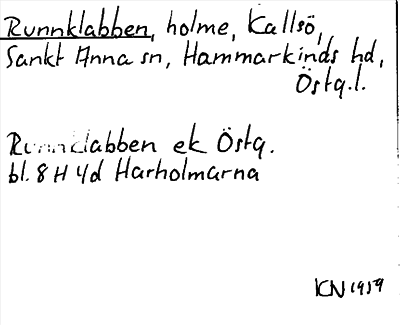 Runnklabben, holme, Kallsö,
Sankt Anna sn, Hammarkinds hd,
Östg.l.
Runnklabben ek Östg.
bl. 8 H 4d Harholmarna
KN 1959